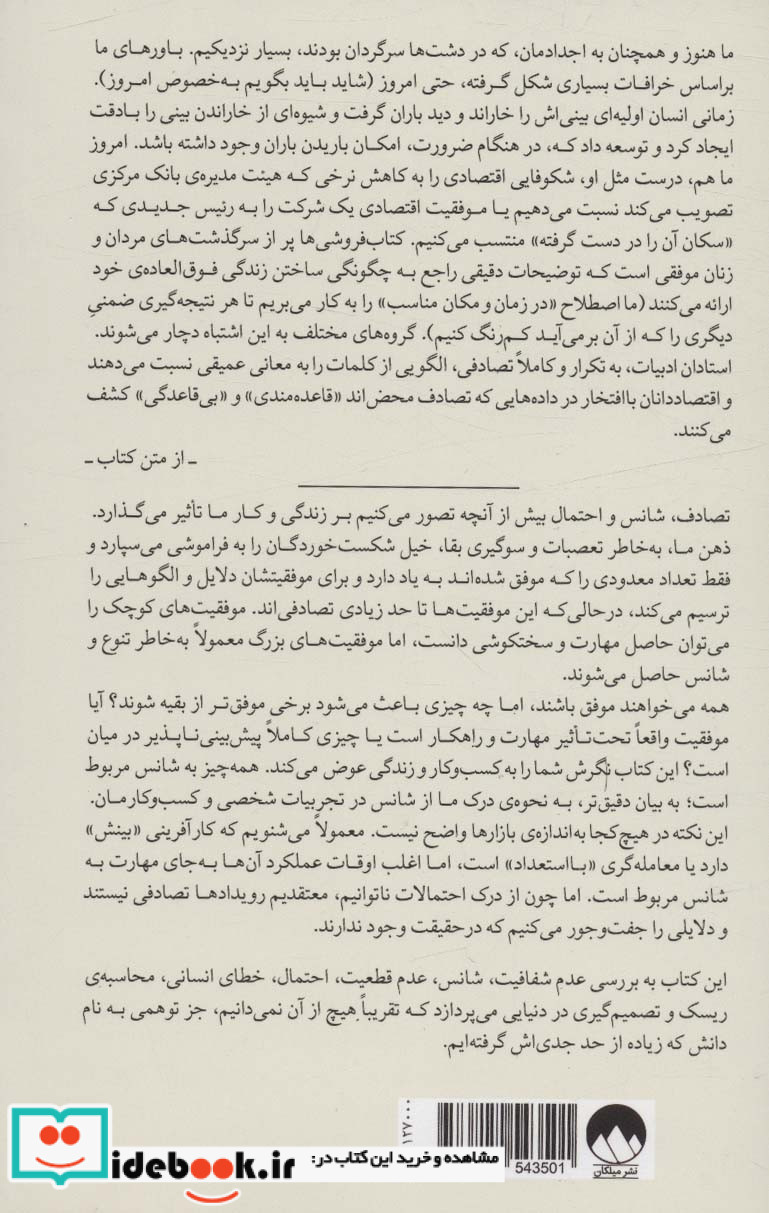 ما هنوز و همچنان به اجدادمان، که در دشت‌ها سرگردان بودند، بسیار نزدیکیم. باورهای ما
براساس خرافات بسیاری شکل گرفته، حتی امروز (شاید باید بگویم به‌خصوص امروز).
زمانی انسان اولیه‌ای بینی‌اش را خاراند و دید باران گرفت و شیوه‌ای از خاراندن بینی را بادقت
ایجاد کرد و توسعه داد که، در هنگام ضرورت، امکان باریدن باران وجود داشته باشد. امروز
ما هم، درست مثل او، شکوفایی اقتصادی را به کاهش نرخی که هیئت مدیره‌ی بانک مرکزی
تصویب می‌کند نسبت می‌دهیم یا موفقیت اقتصادی یک شرکت را به رئیس جدیدی که
«سکان آن را در دست گرفته» منتسب می‌کنیم. کتاب‌فروشی‌ها پر از سرگذشت‌های مردان و
زنان موفقی است که توضیحات دقیقی راجع به چگونگی ساختن زندگی فوق‌العاده‌ی خود
ارائه می‌کنند (ما اصطلاح «در زمان و مکان مناسب» را به کار می‌بریم تا هر نتیجه‌گیری ضمنیِ
دیگری را که از آن برمی‌آید کم‌رنگ کنیم). گروه‌های مختلف به این اشتباه دچار می‌شوند.
استادان ادبیات، به تکرار و کاملاً تصادفی، الگویی از کلمات را به معانی عمیقی نسبت می‌دهند
و اقتصاددانان باافتخار در داده‌هایی که تصادف محض‌اند «قاعده‌مندی» و «بی‌قاعدگی» کشف
می‌کنند.
ـ از متن کتاب ـ
تصادف، شانس و احتمال بیش از آنچه تصور می‌کنیم بر زندگی و کار ما تأثیر می‌گذارد.
ذهن ما، به‌خاطر تعصبات و سوگیری بقا، خیل شکست‌خوردگان را به فراموشی می‌سپارد و
فقط تعداد معدودی را که موفق شده‌اند به یاد دارد و برای موفقیتشان دلایل و الگوهایی را
ترسیم می‌کند، درحالی‌که این موفقیت‌ها تا حد زیادی تصادفی‌اند. موفقیت‌های کوچک را
می‌توان حاصل مهارت و سختکوشی دانست، اما موفقیت‌های بزرگ معمولاً به‌خاطر تنوع و
شانس حاصل می‌شوند.
همه می‌خواهند موفق باشند، اما چه چیزی باعث می‌شود برخی موفق‌تر از بقیه شوند؟ آیا
موفقیت واقعاً تحت‌تأثیر مهارت و راهکار است یا چیزی کاملاً پیش‌بینی‌ناپذیر در میان
است؟ این کتاب نگرش شما را به کسب‌وکار و زندگی عوض می‌کند. همه‌چیز به شانس مربوط
است؛ به بیان دقیق‌تر، به نحوه‌ی درک ما از شانس در تجربیات شخصی و کسب‌وکارمان.
این نکته در هیچ‌کجا به‌اندازه‌ی بازارها واضح نیست. معمولاً می‌شنویم که کارآفرینی «بینش»
دارد یا معامله‌گری «بااستعداد» است، اما اغلب اوقات عملکرد آن‌ها به‌جای مهارت به
شانس مربوط است. اما چون از درک احتمالات ناتوانیم، معتقدیم رویدادها تصادفی نیستند
و دلایلی را جفت‌وجور می‌کنیم که درحقیقت وجود ندارند.
این کتاب به بررسی عدم شفافیت، شانس، عدم قطعیت، احتمال، خطای انسانی، محاسبه‌ی
ریسک و تصمیم‌گیری در دنیایی می‌پردازد که تقریباً هیچ از آن نمی‌دانیم، جز توهمی به نام
دانش که زیاده از حد جدی‌اش گرفته‌ایم.
۱۲۷۰۰۰
543501
نشر میلکان
مشاهده و خرید این کتاب در:
idebook.ir